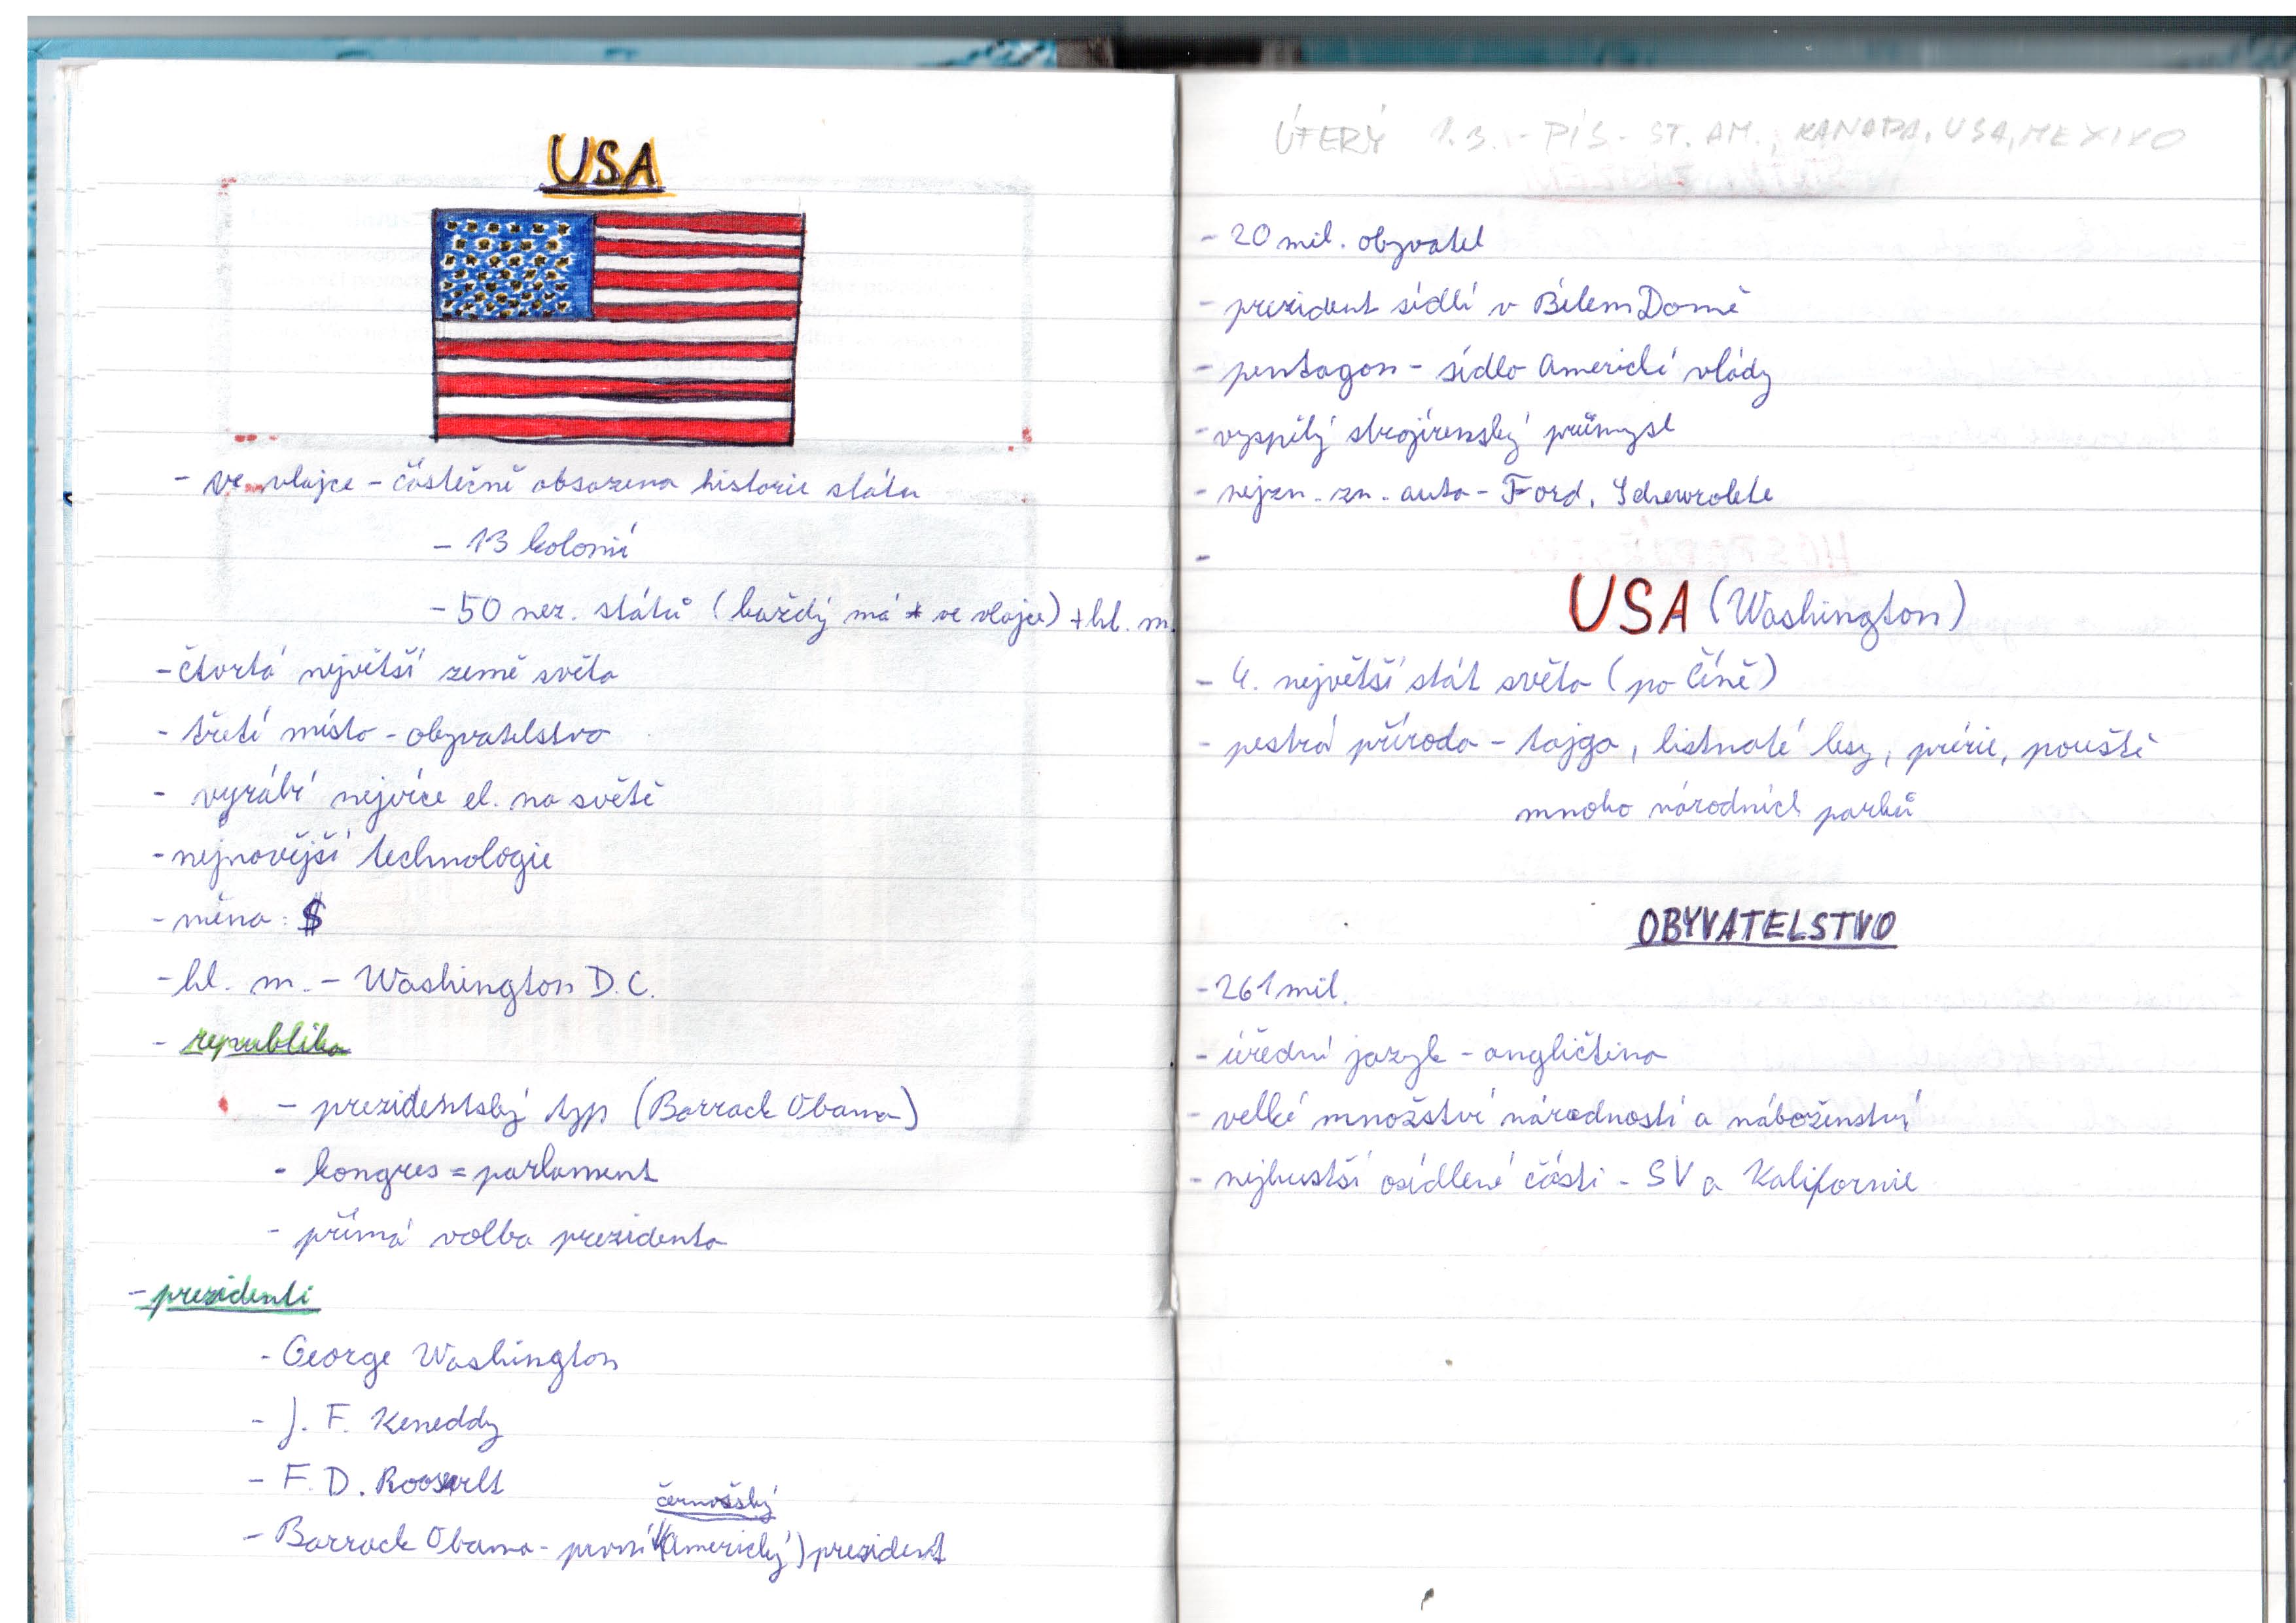 USA
- ve vlajce - částečně obsazena historie státu
- 13 kolonií
- 50 nez. států (každý má * ve vlajce) + hl. m.
- čtvrtá největší země světa
- třetí místo - obyvatelstvo
- vyrábí nejvíce el. na světě
- nejnovější technologie
- měna: $
- hl. m. - Washington D.C.
- republika
- prezidentský typ (Barrack Obama)
- kongres = parlament
- přímá volba prezidenta
- prezidenti
- George Washington
- J. F. Keneddy
- F. D. Roosvelt
černošský
- Barrack Obama - první (Americký) prezident
ÚTERÝ 1.3. - PÍS - ST. AM., KANADA, USA, MEXIKO
- 20 mil. obyvatel
- prezident sídlí v Bílem Domě
- pentagon - sídlo Americké vlády
- vyspělý strojírenský průmysl
- nejzn. zn. auta - Ford, Schewrolete
-
USA (Washington)
- 4. největší stát světa (po Číně)
- pestrá příroda - tajga, listnaté lesy, prérie, pouště
mnoho národních parků
OBYVATELSTVO
- 261 mil.
- úřední jazyk - angličtina
- velké množství národností a náboženství
- nejhustší osídlené části - SV a Kalifornie